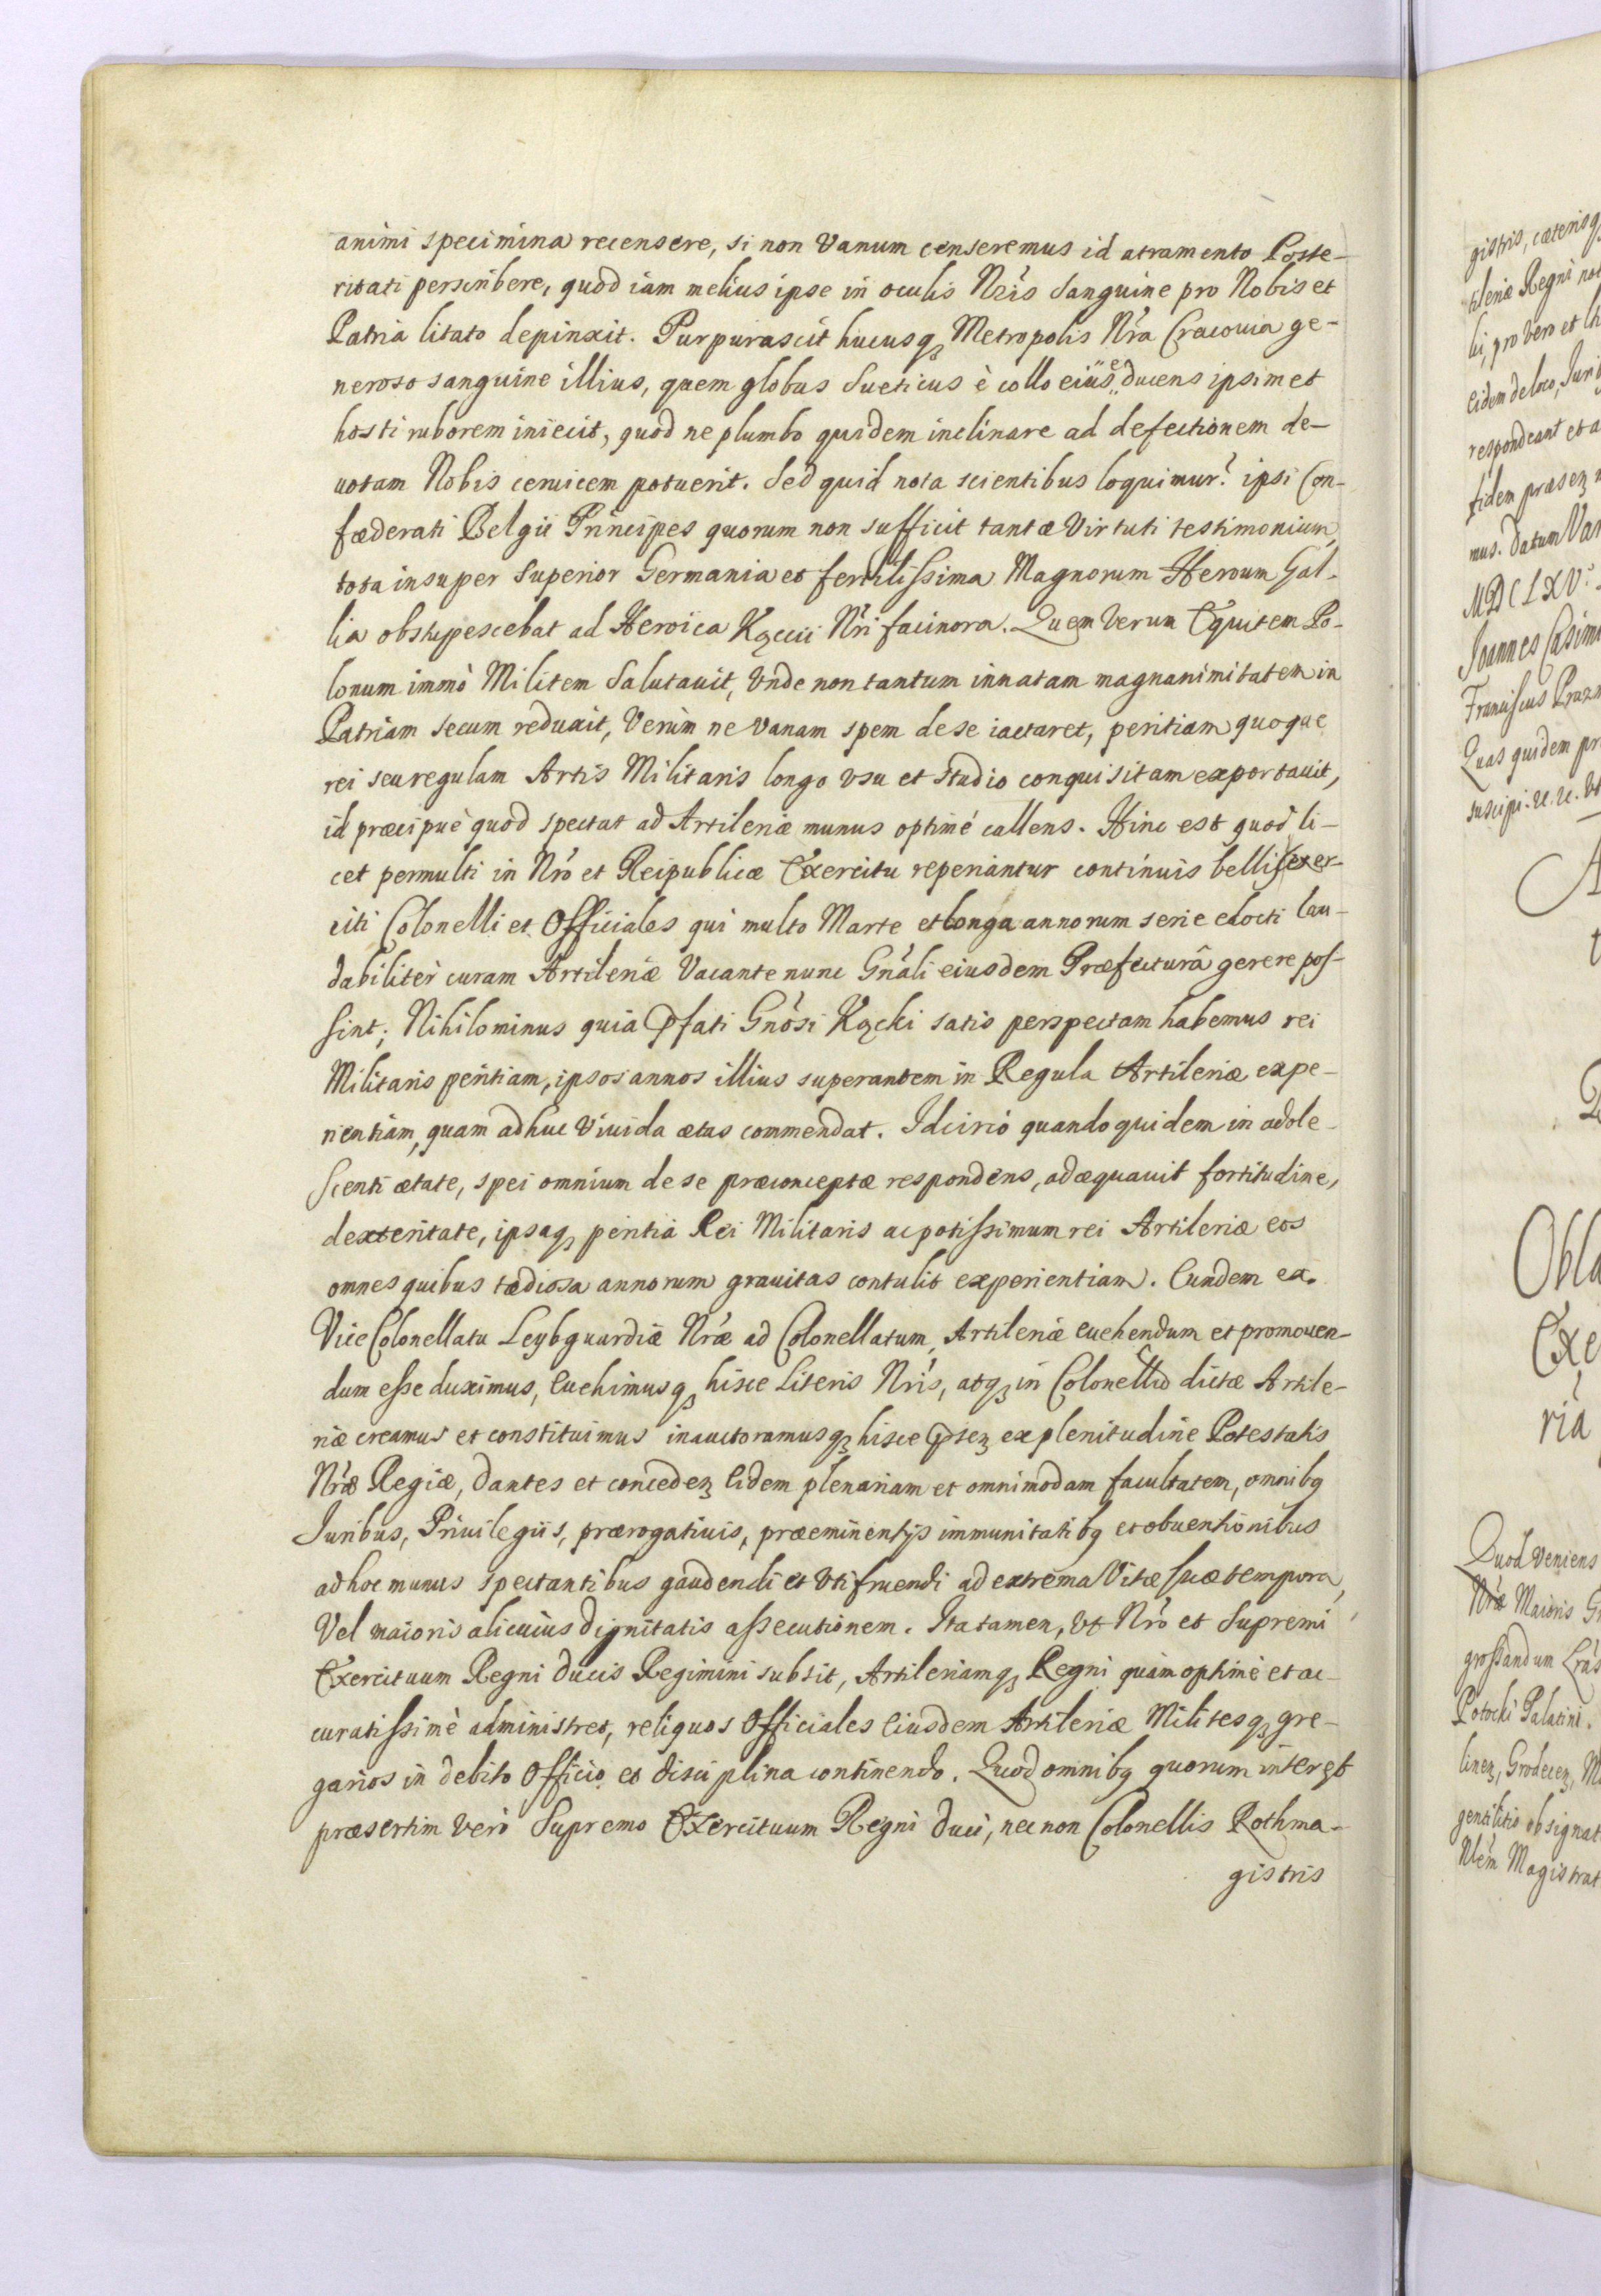 animi specimina recensere, si non vanum censeremus id atramento Poste-
ritati perscribere, quod iam melius ipse in oculis Nr̃is Sanguine pro Nobis et
Patria litato depinxit. Purpurascit hucusq₃ Metropolis Nr̃a Cracouia ge-
neroso sanguine illius, quem globus Sueticus è collo eius educens ipsimet
hosti ruborem iniecit, quod ne plumbo quidem inclinare ad defectionem de-
uotam Nobis ceruicem potuerit. Sed quid nota scientibus loquimur? ipsi Con-
fæderati Belgii Principes quorum non sufficit tantæ Virtuti testimonium,
tota insuper Superior Germania et fertilissima Magnorum Heroum Gal-
lia obstupescebat ad Heroica Kąccii Nr̃i facinora. Quem verum Equitem Po-
lonum immò Militem Salutauit, Vnde non tantum innatam magnanimitatem in
Patriam secum reduxit, Verùm ne vanam spem de se iactaret, peritiam quoque
rei seu regulam Artis Militaris longo vsu et studio conquisitam exportauit,
id præcipuè quod spectat ad Artileriæ munus optimé callens. Hinc est quod li-
cet permulti in Nr̃o et Reipublicæ Exercitu reperiantur continuis bellis exer-
citi Colonelli et Officiales qui multo Marte et longa annorum serie edocti lau-
dabiliter curam Artileriæ Vacante nunc Gn̄ali eiusdem Præfecturâ gerere pos-
sint; Nihilominus quia Pfati Gn̄osi Kącki satis perspectam habemus rei
Militaris peritiam, ipsos annos illius superantem in Regula Artileriæ expe-
rientiam, quam adhuc Viuida ætas commendat. Idcircó quandoquidem in adole-
scenti ætate, spei omnium de se præconceptæ respondens, adæquauit fortitudine,
dexteritate, ipsaq₃ peritia Rei Militaris ac potissimum rei Artileriæ eos
omnes quibus tædiosa annorum grauitas contulit experientiam. Eundem ex
Vice Colonellatu Leybguardiæ Nr̃æ ad Colonellatum Artileriæ euehendum et promouen-
dum esse duximus, Euehimusq₃ hisce Literis Nr̃is, atq₃ in Colonellũ dictæ Artile-
riæ creamus et constituimus inauctoramusq₃ hisce Psen₃ ex plenitudine Potestatis
Nr̃æ Regiæ, Dantes et conceden₃ Eidem plenariam et omnimodam facultatem, omnibq₃
Iuribus, Priuilegiis, prærogatiuis, præeminentijs immunitatibq₃ et obuentionibus
ad hoc munus spectantibus gaudendi et Vtifruendi ad extrema Vitæ suæ tempora,
Vel maioris alicuius dignitatis assecutionem. Ita tamen, vt Nr̃o et Supremi
Exercituum Regni Ducis Regimini subsit, Artileriamq₃ Regni quàm optimè et ac-
curatissimè administret, reliquos Officiales Eiusdem Artileriæ Militesq₃ gre-
garios in debito Officio et disciplina continendo. Quod omnibq₃ quorum interest
præsertim verò Supremo Exercituum Regni Duci, nec non Colonellis Rothma-
gistris
gistris, cæterisq₃
tileriæ Regni
pro vero et
Eidem de loco,
respondeant et
fidem præsen₃
mus. Datum
MDCLXV.
Joannes
Franciscus
Quas quidem
suscipi.
ria
Quod veniens
Nr̃æ Maioris
grossandum
Potocki Palatini
Grodecen₃,
gentilitio obsignat